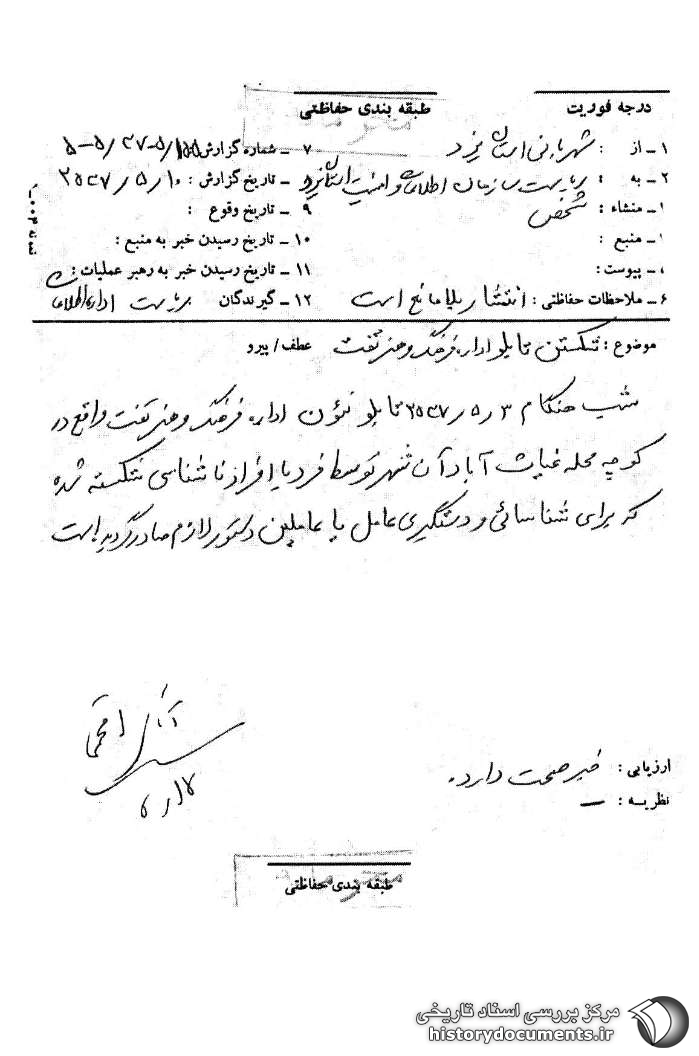 درجه فوریت
طبقه بندی حفاظتی
محرمانه
۱ـ از : شهربانی استان یزد
۷ ـ شماره گزارش
۲ـ به : ریاست سازمان اطلاعات و امنیت استان یزد
۸ ـ تاریخ گزارش : ۱۰ر۵ر۲۵۳۷
۱ـ منشاء : شخص
۹ ـ تاریخ وقوع :
۱ـ منبع :
۱۰ ـ تاریخ رسیدن خبر به منبع :
پیوست :
۱۱ ـ تاریخ رسیدن خبر به رهبر عملیات :
۶ـ ملاحظات حفاظتی : انتشار بلامانع است
۱۲ ـ گیرندگان ریاست اداره اطلاعات
موضوع : شکستن تابلو اداره فرهنگ و هنر تفت
عطف / پیرو
شب هنگام ۳ر۵ر۲۵۳۷ تابلو نئون اداره فرهنگ و هنر تفت واقع در
کوچه محله غیاث آباد آن شهر توسط فرد یا افراد ناشناسی شکسته شده
که برای شناسائی و دستگیری عامل یا عاملین دستور لازم صادر گردیده است
ارزیابی : خبر صحت دارد.
نظریه : ـ
طبقه بندی حفاظتی
مرکز بررسی اسناد تاریخی
historydocuments.ir